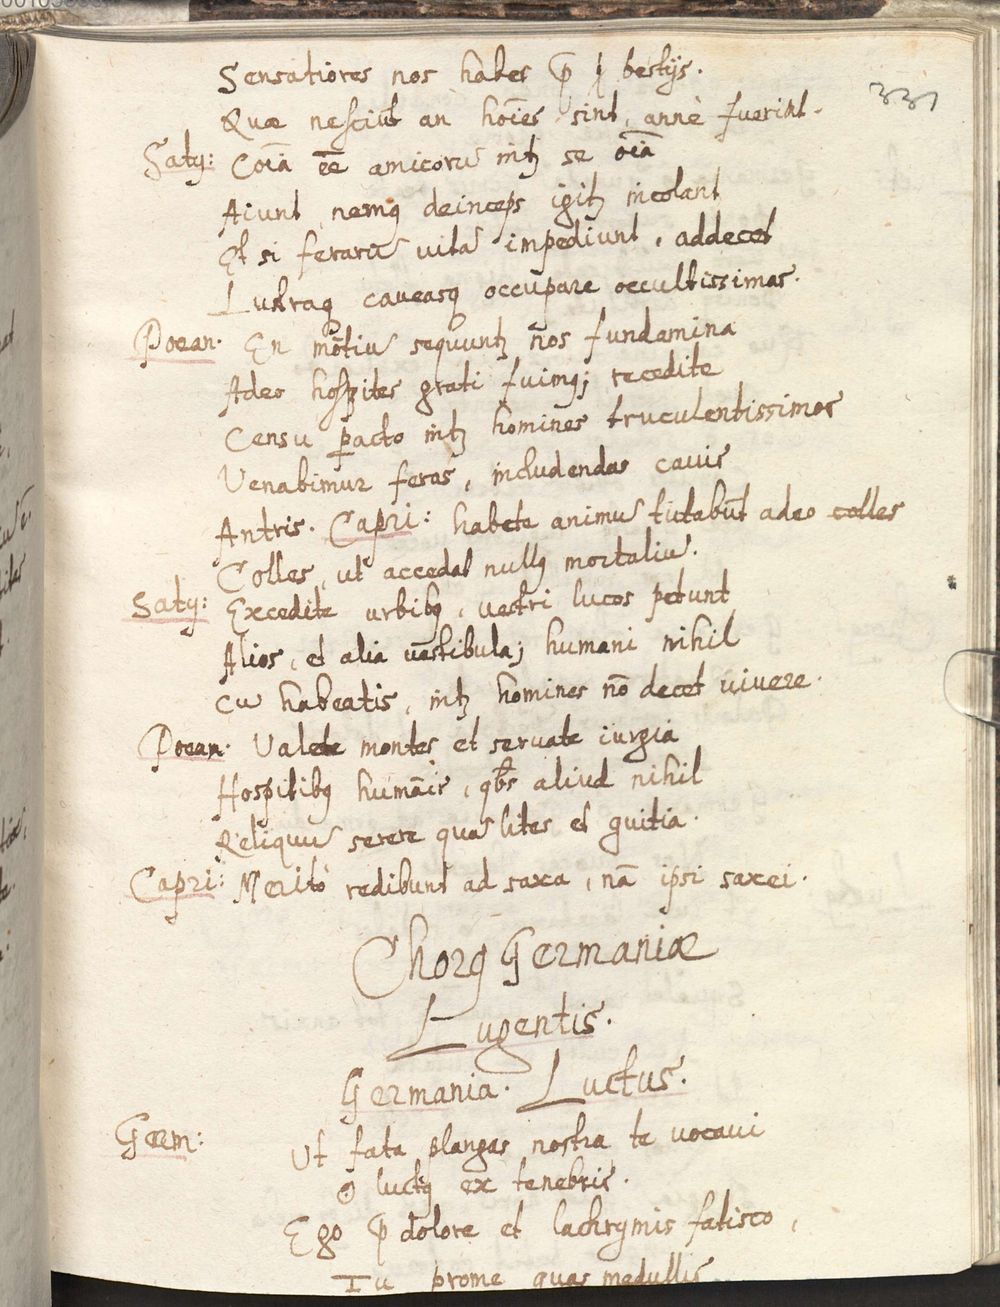 331
Sensatiores nos habes p̃ bestijs.
Quæ nesciũt an hoĩes sint, annè fuerint.
Saty: Coĩa ẽe amicorũ intꝫ se oĩa
Aiunt, nemq̃ deinceps igitꝫ incolant
Et si ferarũ uitã impediunt, addecet
Lustraq caveasq occupare occultissimas.
Poean. En mõtiũ sequuntꝫ ños fundamina
Adeo hospites grati fuimq; recedite
Censu pacto intꝫ homines truculentissimos
Venabimur feras, includendas cauis
Antris. Capri: habete animũ tutabũt adeo colles
Colles, ut accedat nullq mortaliũ.
Saty: Excedite urbibq, uestri lucos petunt
Alios, et alia uestibula; humani nihil
Cũ habeatis, intꝫ homines nõ decet uiuere.
Poean. Valete montes et seruate iurgia
Hospitibq humãis, qb̃s aliud nihil
Reliquũ serere quã lites et guitia.
Capri: Meritò redibunt ad saxa, nã ipsi saxei.
Chorq Germaniæ
Lugentis.
Germania. Luctus.
Germ: Ut fata plangas nostra te uocaui
O luctq ex tenebris.
Ego p̃ dolore et lachrymis fatisco,
Tu prome quas medullis